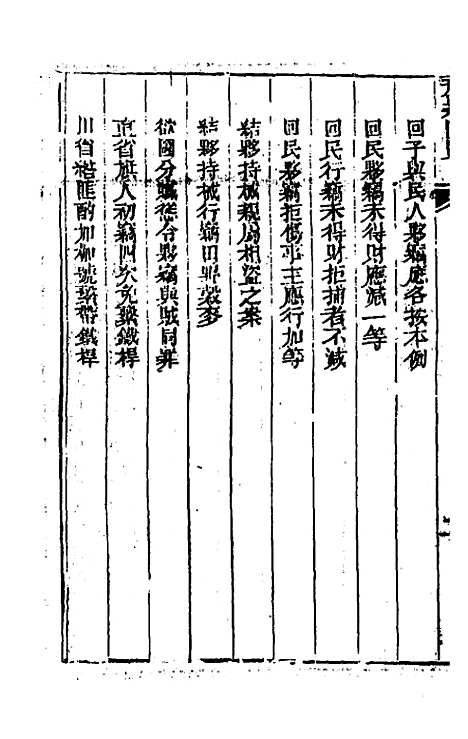 回子與民人夥竊應各按本例
回民夥竊未得財應減一等
回民行竊未得財拒捕者不減
回民夥竊拒傷事主應行加等
結夥持械親屬相盜之案
結夥持械行竊田野穀麥
從圖分贓聽從夥竊與賊同罪
直省旗人初竊四次免繫鐵桿
川省綹匪酌加枷號繫帶鐵桿